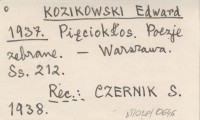 KOZIKOWSKI Edward
1937. Pięciokłos. Poezje
zebrane. — Warszawa.
Ss. 212.
Rec.: CZERNIK S.
1938.